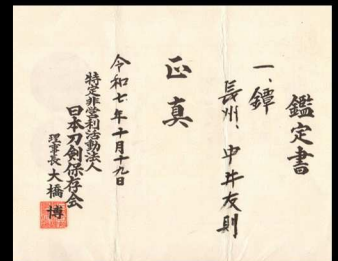 鑑定書
一、鐔
長州、中井友則
正真
令和七年十月十九日
特定非営利活動法人
日本刀剣保存会
理事長 大橋 博